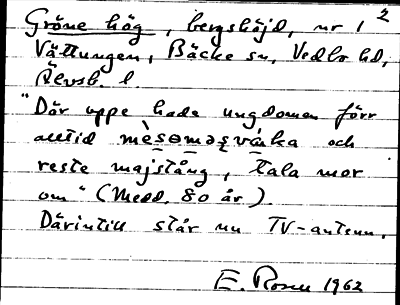 Gröne hög, bergshöjd, nr 1 2
Vättungen, Bäcke sn, Vedbo hd,
Älvsb. l.
"Där uppe hade ungdomen förr
alltid mèsɵmaʂváka och
reste majstång, tala mor
om" (Medd. 80 år).
Därintill står nu TV-antenn.
E. Rosen 1962